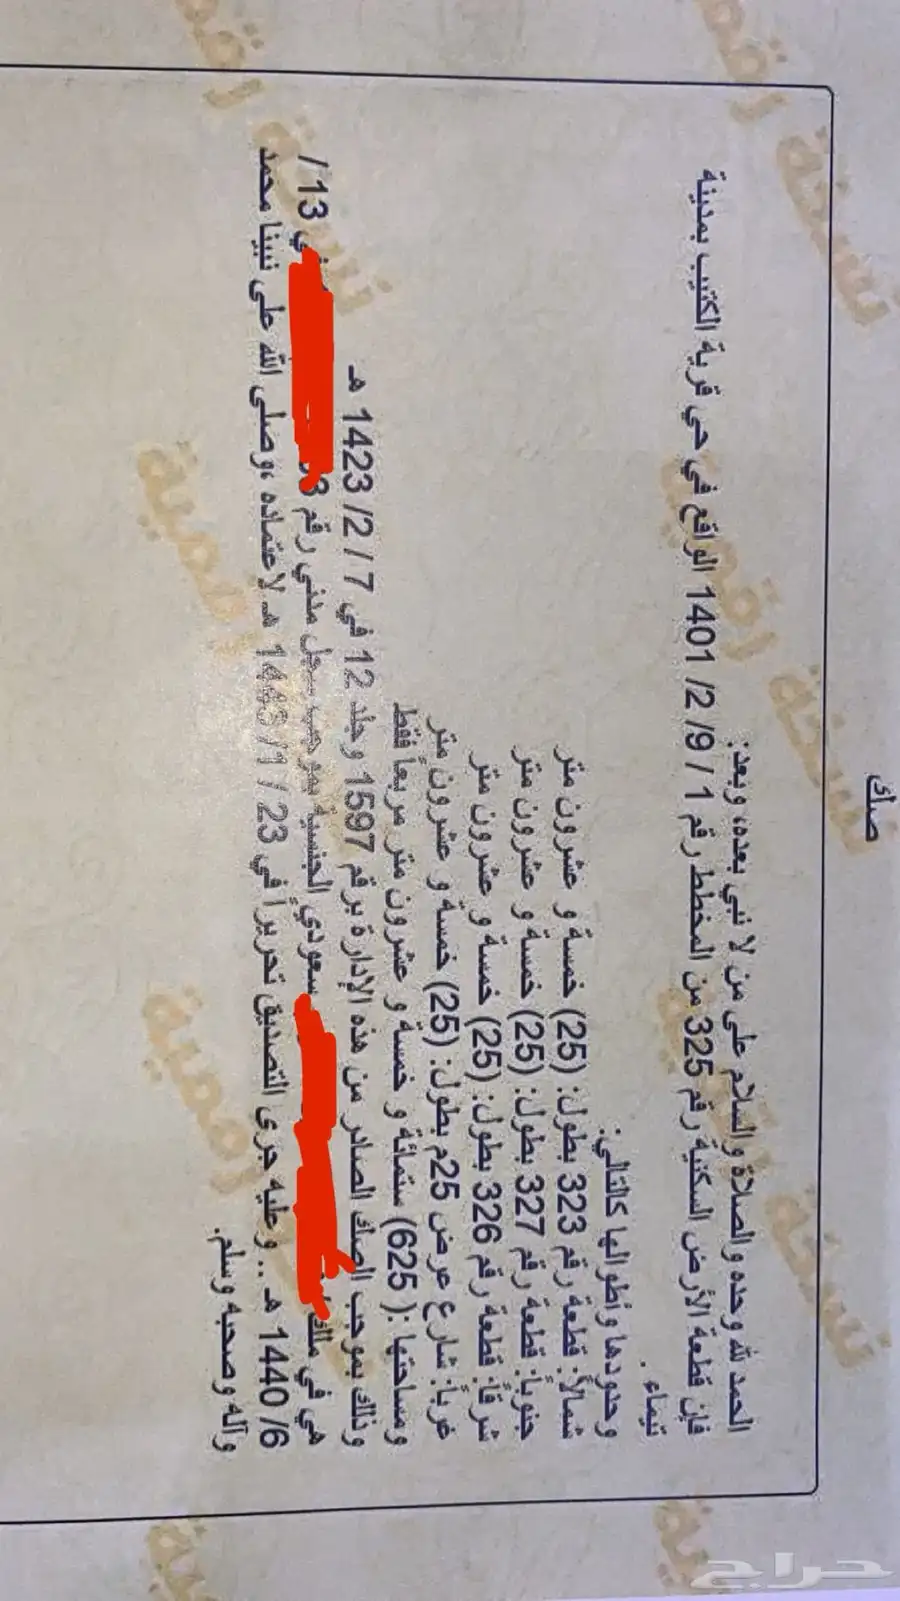 صك
الحمد لله وحده والصلاة والسلام على من لا نبي بعده، وبعد:
فإن قطعة الأرض السكنية رقم 325 من المخطط رقم 1 / 9/ 2/ 1401 الواقع في حي قرية الكتيب بمدينة
تيماء .
وحدودها وأطوالها كالتالي:
شمالاً: قطعة رقم 323 بطول: (25) خمسة و عشرون متر
جنوباً: قطعة رقم 327 بطول: (25) خمسة و عشرون متر
شرقاً: قطعة رقم 326 بطول: (25) خمسة و عشرون متر
غرباً: شارع عرض 25م بطول: (25) خمسة و عشرون متر
ومساحتها :( 625) ستمائة و خمسة و عشرون متر مربعاً فقط
وذلك بموجب الصك الصادر من هذه الإدارة برقم 1597 وجلد 12 في 7 / 2/ 1423 هـ
هي في ملك سعودي الجنسية بموجب سجل مدني رقم في 13 /
6/ 1440 هـ .. وعليه جرى التصديق تحريراً في 23 / 1/ 1443 هـ لاعتماده ،وصلى الله على نبينا محمد
وآله وصحبه وسلم.
نسخة رقمية
حراج